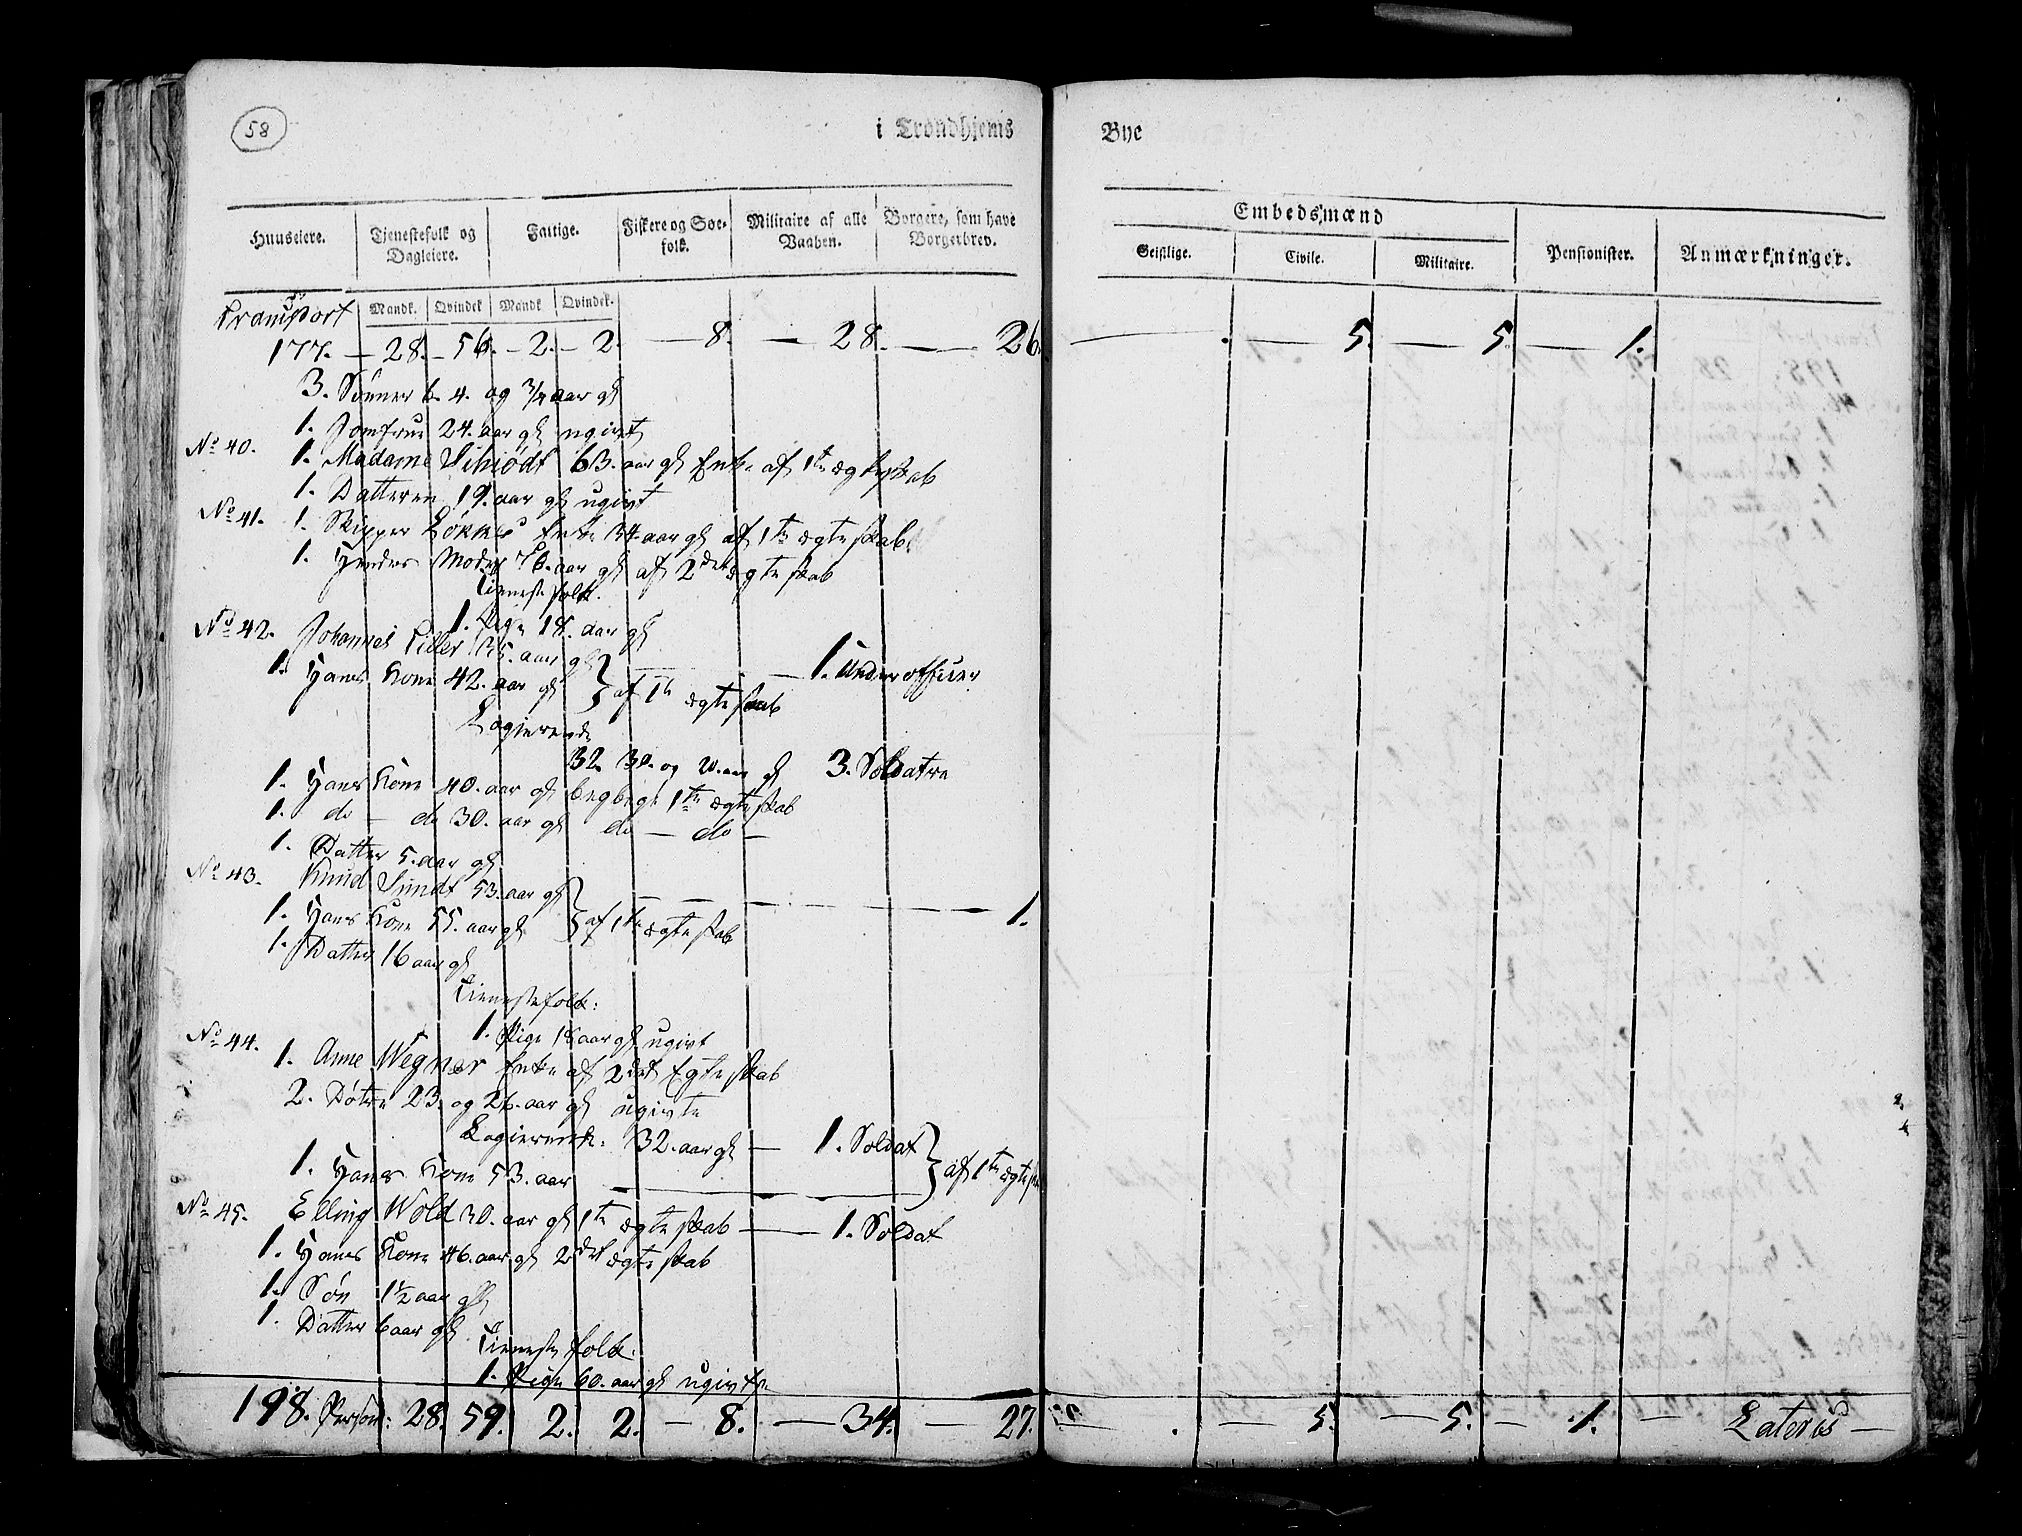 58
i Trondhjems Bye
Huuseiere.
Tjenestefolk og Dagleiere.
Fattige.
Fiskere og Søe-folk.
Militaire af alle Vaaben.
Borgere, som have Borgerbrev.
Embedsmænd
Geistlige.
Civile.
Militaire.
Pensionister.
Anmærkninger.
Mandk. Qvindek Mandk Qvindek.
Transport
177. — 28. — 56. — 2. — 2. — 8. — 28. — 26. — . — 5. — 5. — 1.
3. Sønner 6. 4. og 3/4 aar gl
1. Jomfrue 24. aar gl ugivt
No 40. 1. Madame Schiødt 63. aar gl Enke af 1te ægteskab
1. Datteren 19. aar gl ugivt
No 41. 1. Skipper Løkkes Enke 34 aar gl af 1te ægteskab
1. Hendes Moder 76. aar gl af 2det ægteskab
Tienestefolk.
1. Pige 18. aar gl
No 42. Johannes 35. aar gl
1. Hans Kone 42. aar gl } af 1te ægteskab — 1. Underofficer
Logierende
32. 30. og 20. aar gl 3. Soldatre
1. Hans Kone 40. aar gl begbege 1te ægteskab
1. do — do 30. aar gl do — do —
1. Datter 5. aar gl
No 43. Knud Sundt 53. aar gl
1. Hans Kone 55. aar gl } af 1te ægteskab — 1.
1. Datter 16 aar gl
Tienestefolk:
1. Pige 18 aar gl ugivt
No 44. 1. Anne Wegner Enke af 2det Egteskab
2. Døtre 23. og 26. aar gl ugivte
Logierende: 32. aar gl — 1. Soldat
1. Hans Kone 53. aar } af 1te ægtesk
No 45. Elling Wold 30. aar gl 1te ægteskab — 1. Soldat
1. Hans Kone 46. aar gl 2det ægteskab
1. Søn 1 1/2 aar gl
1. Datter 6 aar gl.
Tienestefolk.
1. Pige 60. aar gl ugivt
198. Person: 28. 59. 2. 2. — 8. — 34. — 27. — . — 5. — 5. — 1. — Lateris —